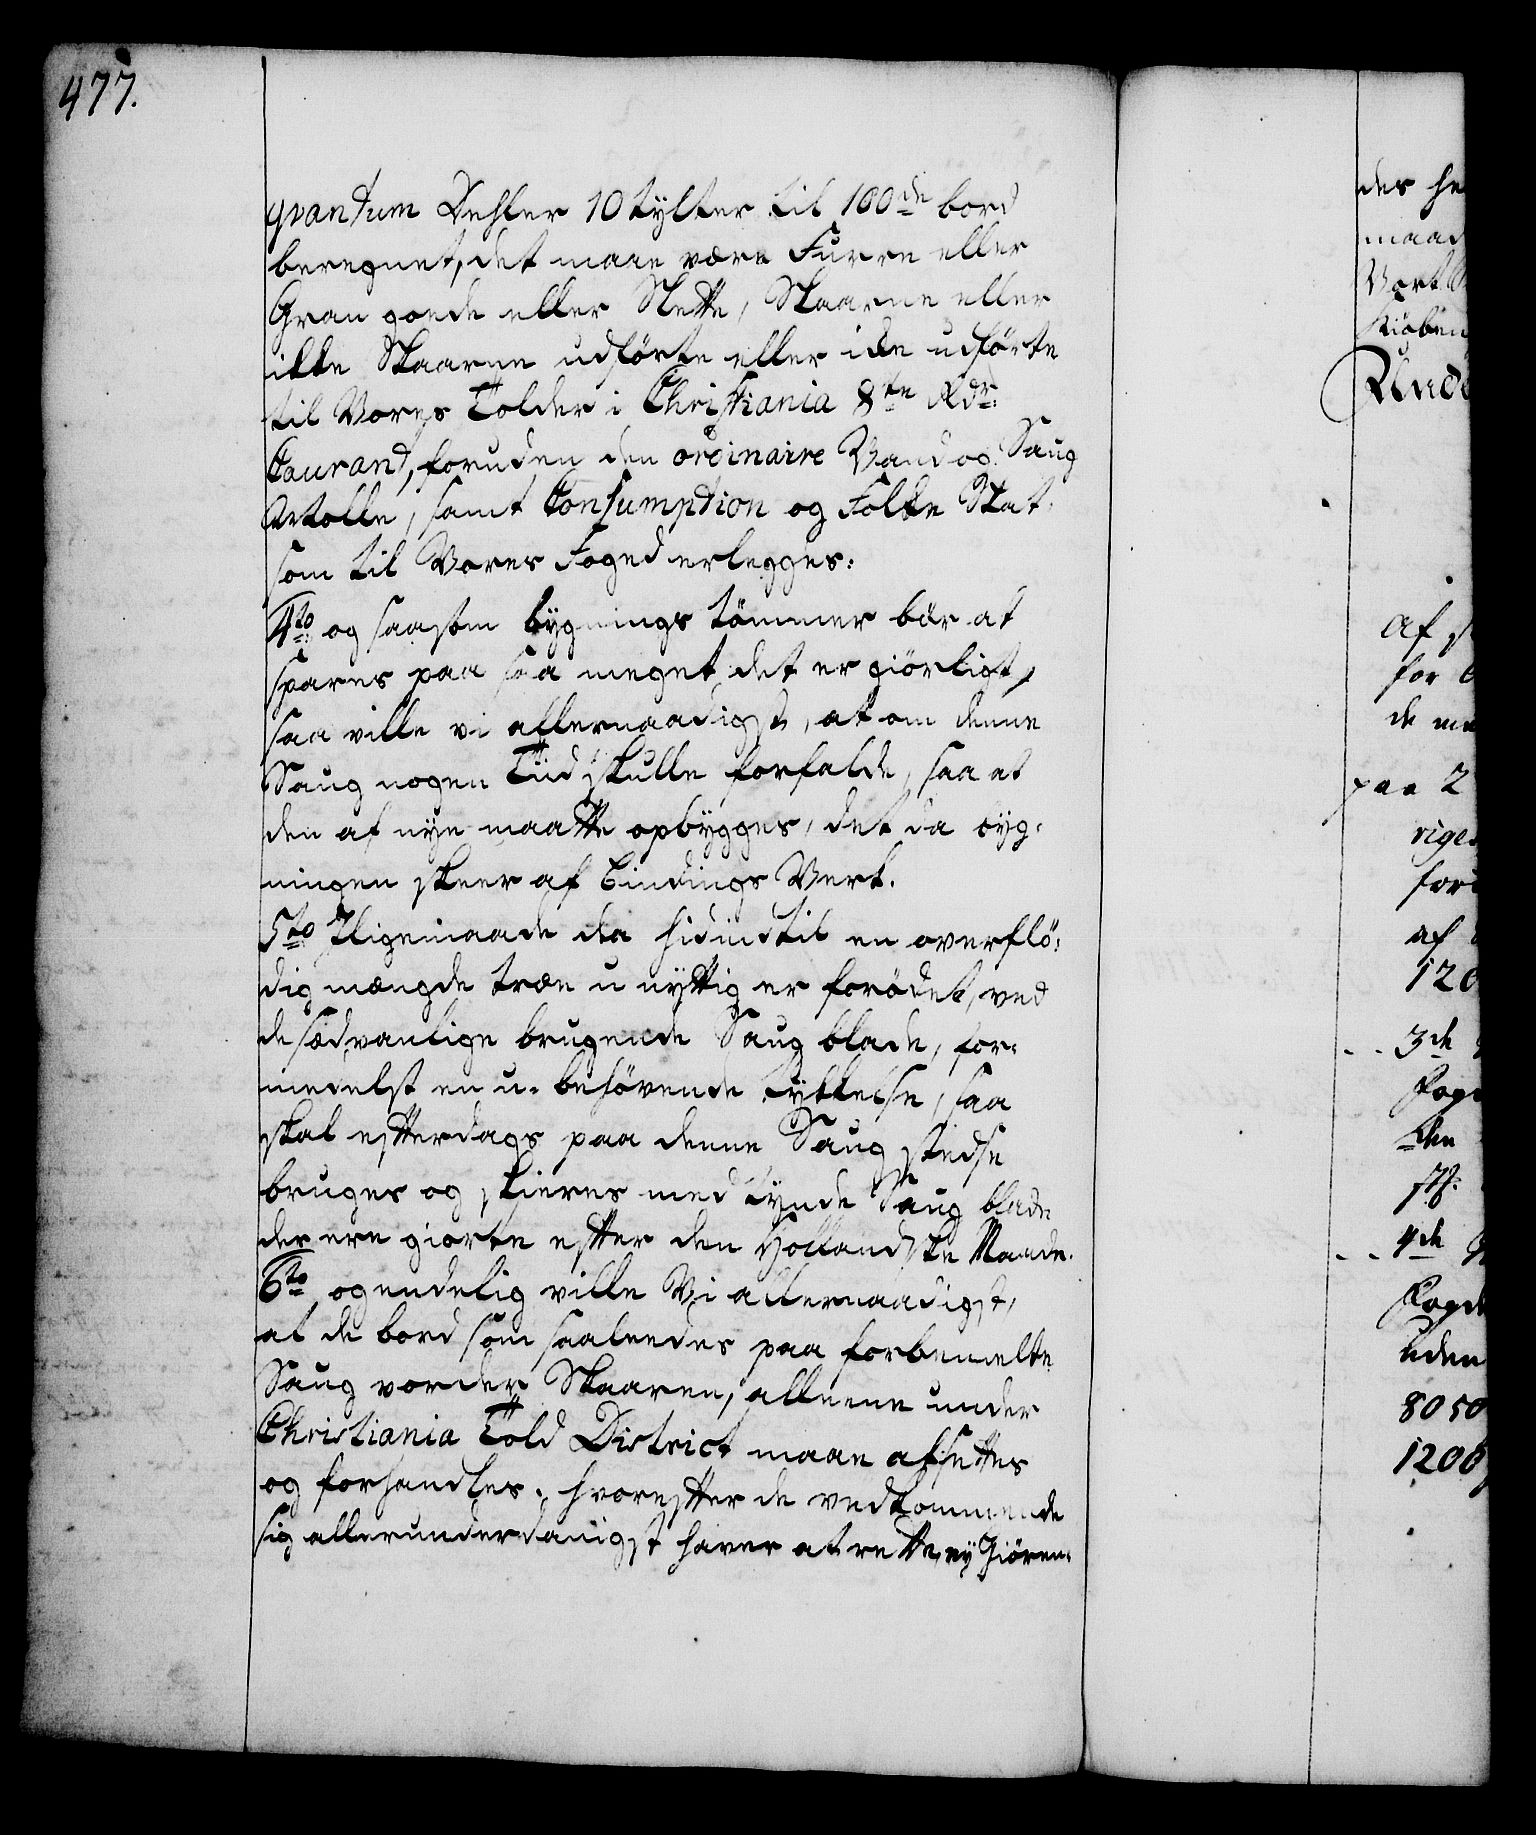 477.
qvantum Dehler 10 tylter til 100de bord
beregnet, det maae være Furre eller
Gran goede eller Slette, Skaarne eller
ikke Skaarne udførte eller icke udførte
til Vores Tolder i Christiania 8te Rdr:
Courant, foruden den ordinaire Vand og Saug
Attolle, samt Consumption og Folke Skat,
som til Vores Foged erlegges:
4to og saasom bygnings tømmer bør at
spares paa saa meget det er giørligt,
saa ville vi allernaadigst, at om denne
Saug nogen Tiid skulle forfalde, saa at
den af nye maatte opbygges, det da byg-
ningen skeer af Bindings Verk.
5to Jligemaade da hidindtil en overflø-
dig mængde træe unyttig er forødet, ved
de sædvanlige brugende Saug blade, for-
medelst en u-behøvende tykkelse, saa
skal efterdags paa denne Saug stedse
bruges og skieres med tynde Saug blade
der ere giorte efter den Hollandske Maade.
6to og endelig ville Vi allernaadigst,
at de bord som saaleedes paa forbemelte
Saug vorder Skaaren, alleene under
Christiania Told District maae afsettes
og forhandles. hvorefter de vedkommende
sig allerunderdanigst haver at rette, ey Giøren-
des
maad
Vort
Kiøben
Unde
Af
for
de
paa 2
riges
for
af
120
3de
Fogd
den
4de
Fogd
uden
8050
1200